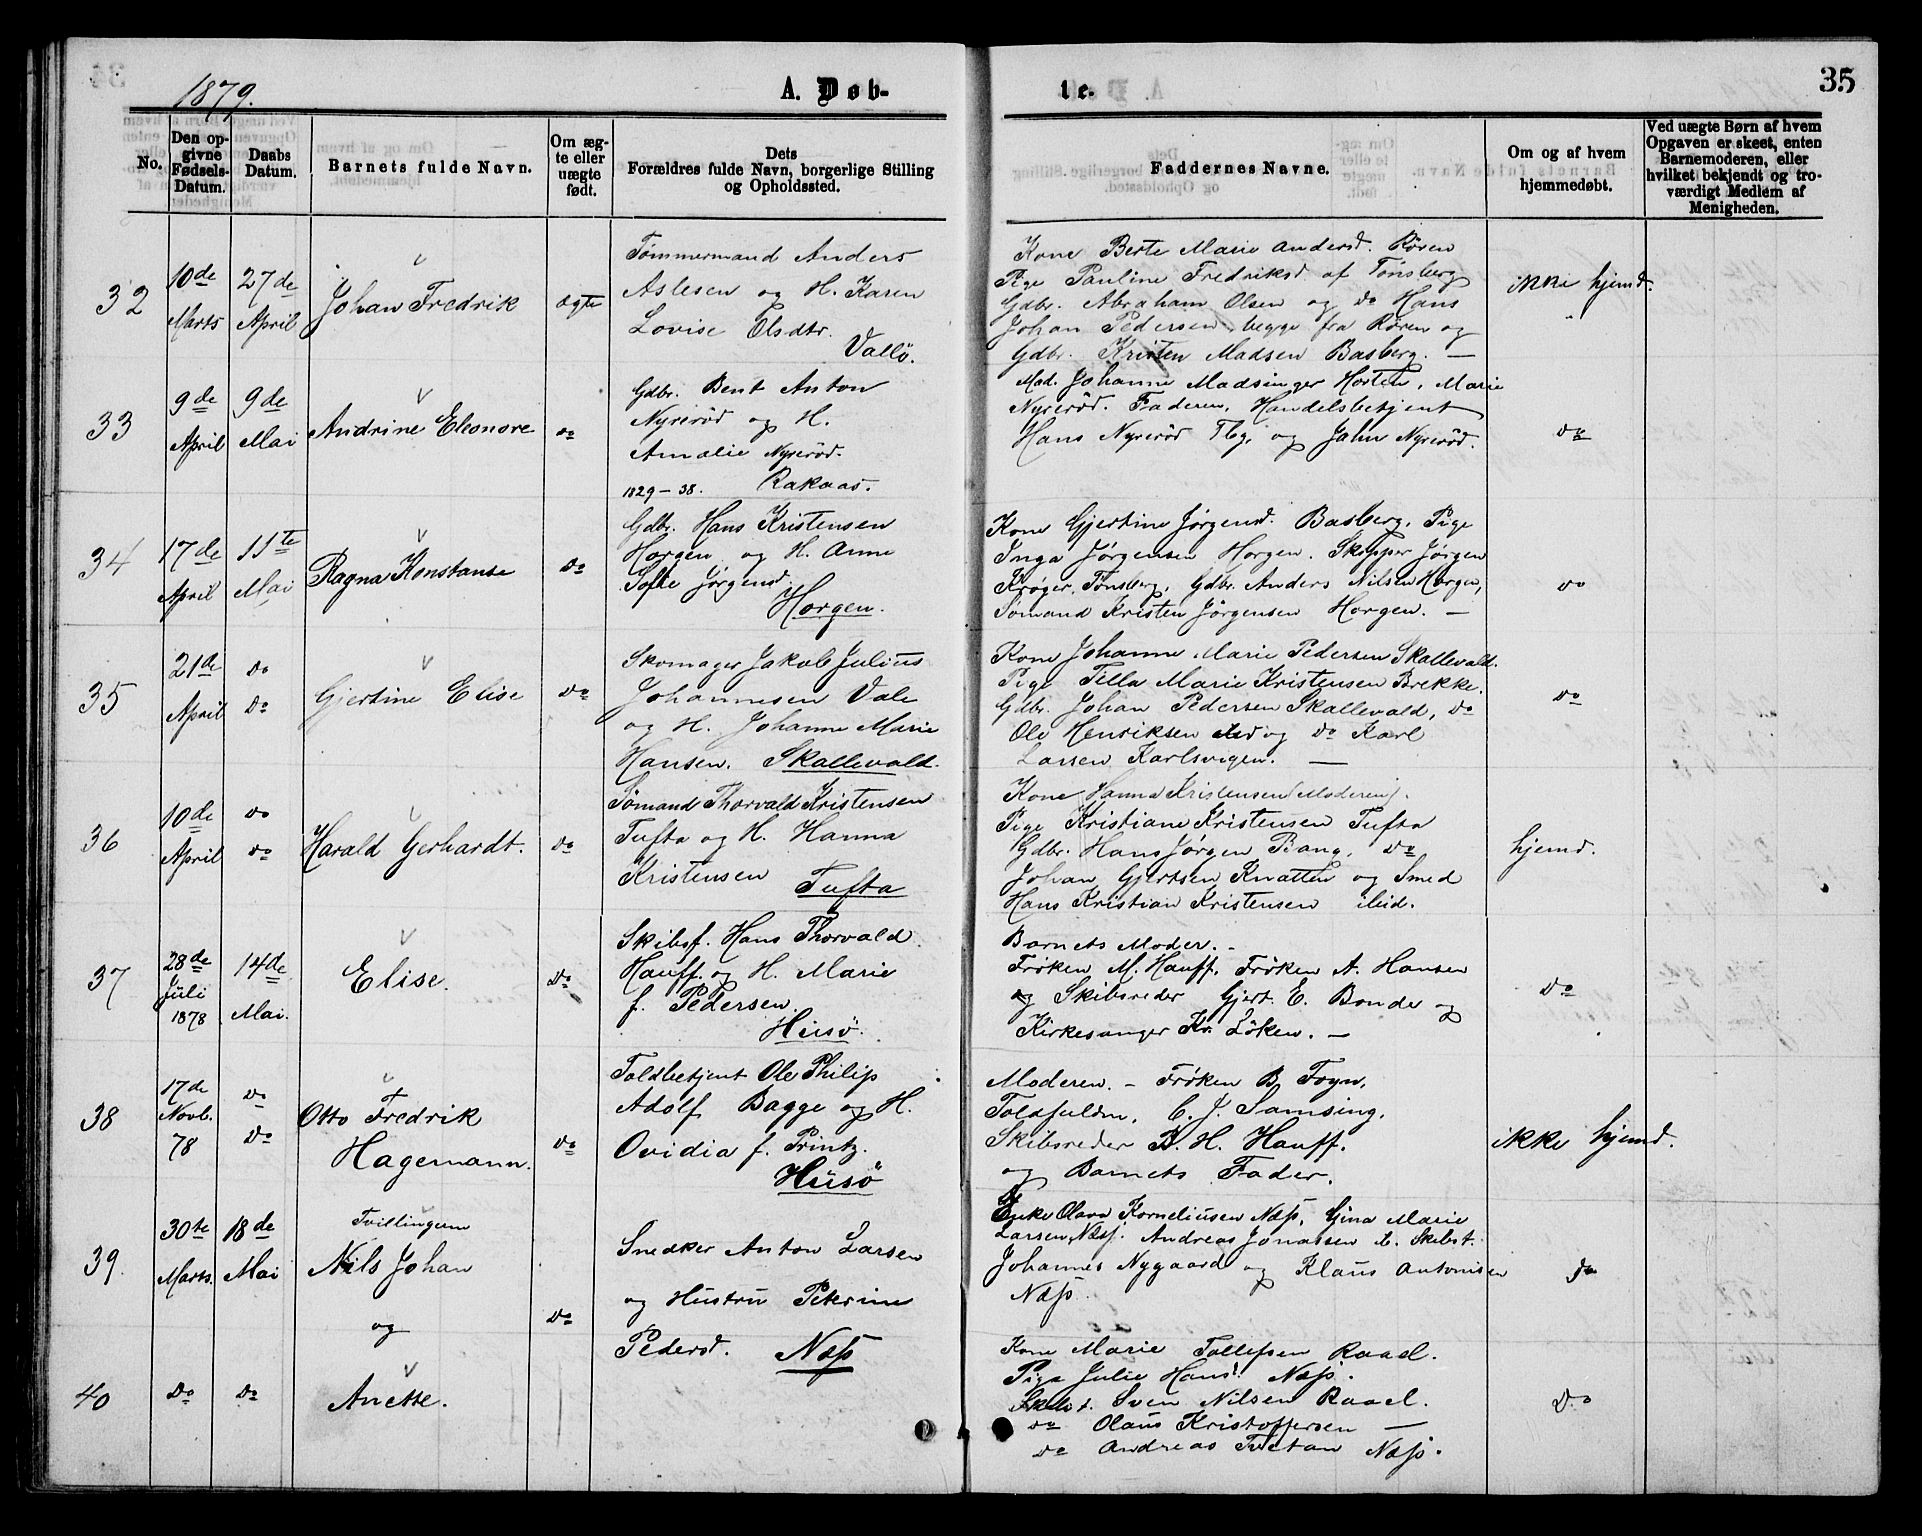 1879.
A. Døb-
te.
35
No.
Den op-
givne
Fødsels-
Datum.
Daabs
Datum.
Barnets fulde Navn.
Om æg-
te eller
uægte
født.
Dets
Forældres fulde Navn, borgerlige Stilling
og Opholdssted.
Faddernes Navne.
Om og af hvem
hjemmedøbt.
Ved uægte Børn af hvem
Opgaven er skeet, enten
Barnemoderen, eller
hvilket bekjendt og tro-
værdigt Medlem af
Menigheden.
32
10de
Marts
27de
April
Johan Fredrik
ægte
Tømmermand Anders
Aslesen og H. Karen
Lovise Olsdtr.
Vallö.
Kone Berte Marie Andersd. Røren
Pige Pauline Fredriksd af Tønsberg
Gdbr. Abraham Olsen og do Hans
Johan Pedersen, begge fra Røren og
Gdbr. Kristen Madsen Basberg. —
ikke hjemd.
33
9de
April
9de
Mai
Andrine Eleonore
do
Gdbr. Bent Anton
Nyrerød og H.
Amalie Nyrerød.
1829-38. Rakaas.
Mad. Johanne Madsinger Horten, Marie
Nyrerød. Faderen, Handelsbetjent
Hans Nyrerød Tbg, og Jahn Nyrerød.
do
34
17de
April
11te
Mai
Ragna Konstanse
do
Gdbr. Hans Kristensen
Horgen og H. Anne
Sofie Jørgensd.
Horgen.
Kone Gjertine Jørgensd. Basberg. Pige
Inga Jørgensen Horgen. Skipper Jørgen
Krøger, Tønsberg, Gdbr. Anders Nilsen Horgen,
Sømand Kristen Jörgensen Horgen. —
do
35
21de
April
do
do
Gjertine Elise
do
Skomager Jakob Julius
Johannesen Vale
og H. Johanne Marie
Hansen. Skallevald.
Kone Johanne Marie Pedersen Skallevald.
Pige Tilla Marie Kristensen Brekke.
Gdbr. Johan Pedersen Skallevald, do
Ole Henriksen og do Karl
Larsen Karlsvigen. —
do
36
10de
April
do
do
Harald Gerhardt.
do
Sømand Thorvald Kristensen
Tufta og H. Hanna
Kristensen Tufta
Kone Hanna Kristensen (Moderen).
Pige Kristiane Kristensen Tufta
Gdbr. Hans Jørgen Bang, do
Johan Gjertsen Knatten og Smed
Hans Kristian Kristensen ibid.
hjemd.
37
28de
Juli
1878
14de
Mai.
Elise.
do
Skibsf. Hans Thorvald
Hauff og H. Marie
f. Pedersen.
Husö.
Barnets Moder. -
Frøken M. Hauff, Frøken A. Hansen
og Skibsreder Gjert. E. Bonde og
Kirkesanger Kr. Löken. —
do
38
17de
Novb.
78
do
do
Otto Fredrik
Hagemann.
do
Toldbetjent Ole Philip
Adolf Bagge og H.
Ovidia f. Printz.
Husö
Moderen. - Frøken B. Foyn,
Toldfuldm, C. J. Samsing,
Skibsreder B. H. Hauff.
og Barnets Fader.
ikke hjemd.
39.
30te
Marts.
18de
Mai
Tvillingerne
Nils Johan
og
do
Snedker Anton Larsen
og Hustru Peterine
Pedersd. Næss
Enke Olava Korneliusen Næss, Gina Marie
Larsen, Næss. Andreas Jonassen . Skibst.
Johannes Nygaard og Klaus Antonisen
Næss.
do
40
do
do
Anette.
Kone Marie Tollefsen Raael.
Pige Julie Hans! Næss.
Skibst. Sven Nilsen Raael.
do Olaus Kristoffersen —
do Andreas Tvetan Næss.
do